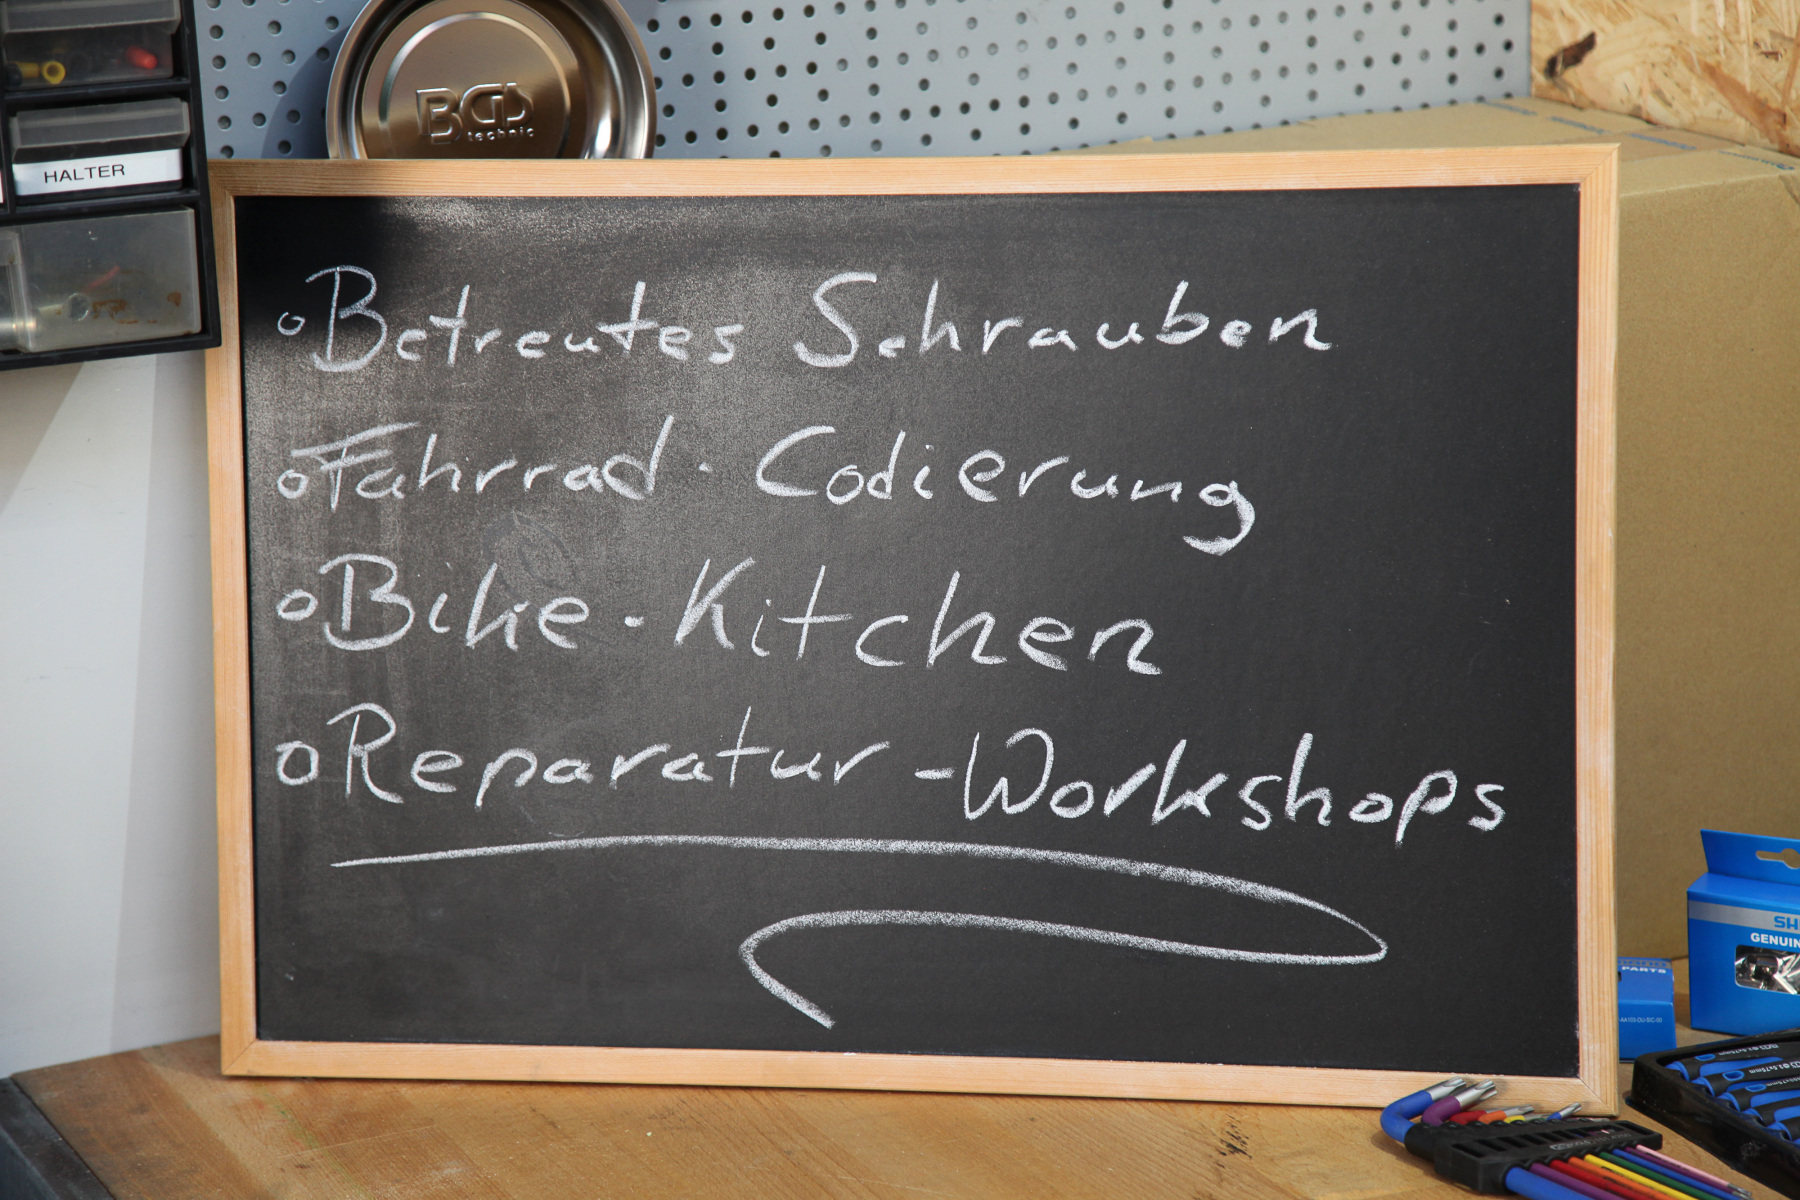 BGS
technic
HALTER
o Betreutes Schrauben
o Fahrrad-Codierung
o Bike-Kitchen
o Reparatur-Workshops
GENUIN
PARTS